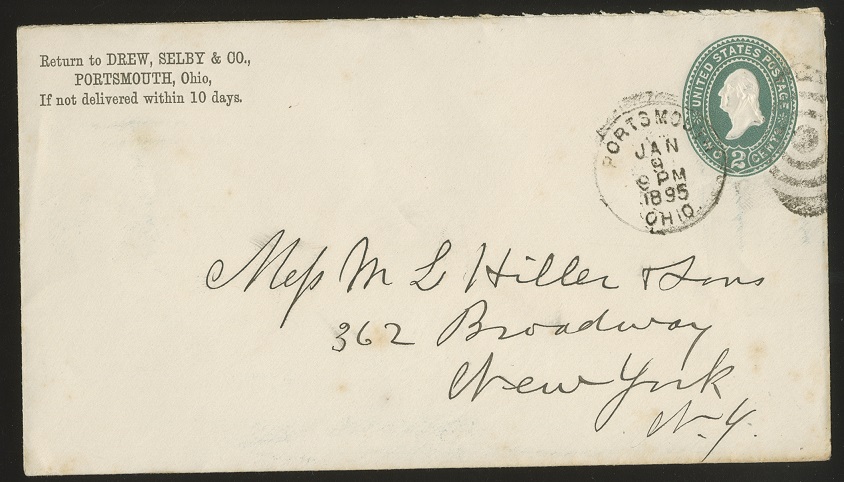 Return to DREW, SELBY & CO.,
PORTSMOUTH, Ohio,
If not delivered within 10 days.
UNITED STATES POSTAGE
2 CENTS
PORTSMOUTH
JAN
9
9 PM
1895
OHIO
Mess M L Hiller & Sons
362 Broadway
New York
N. Y.